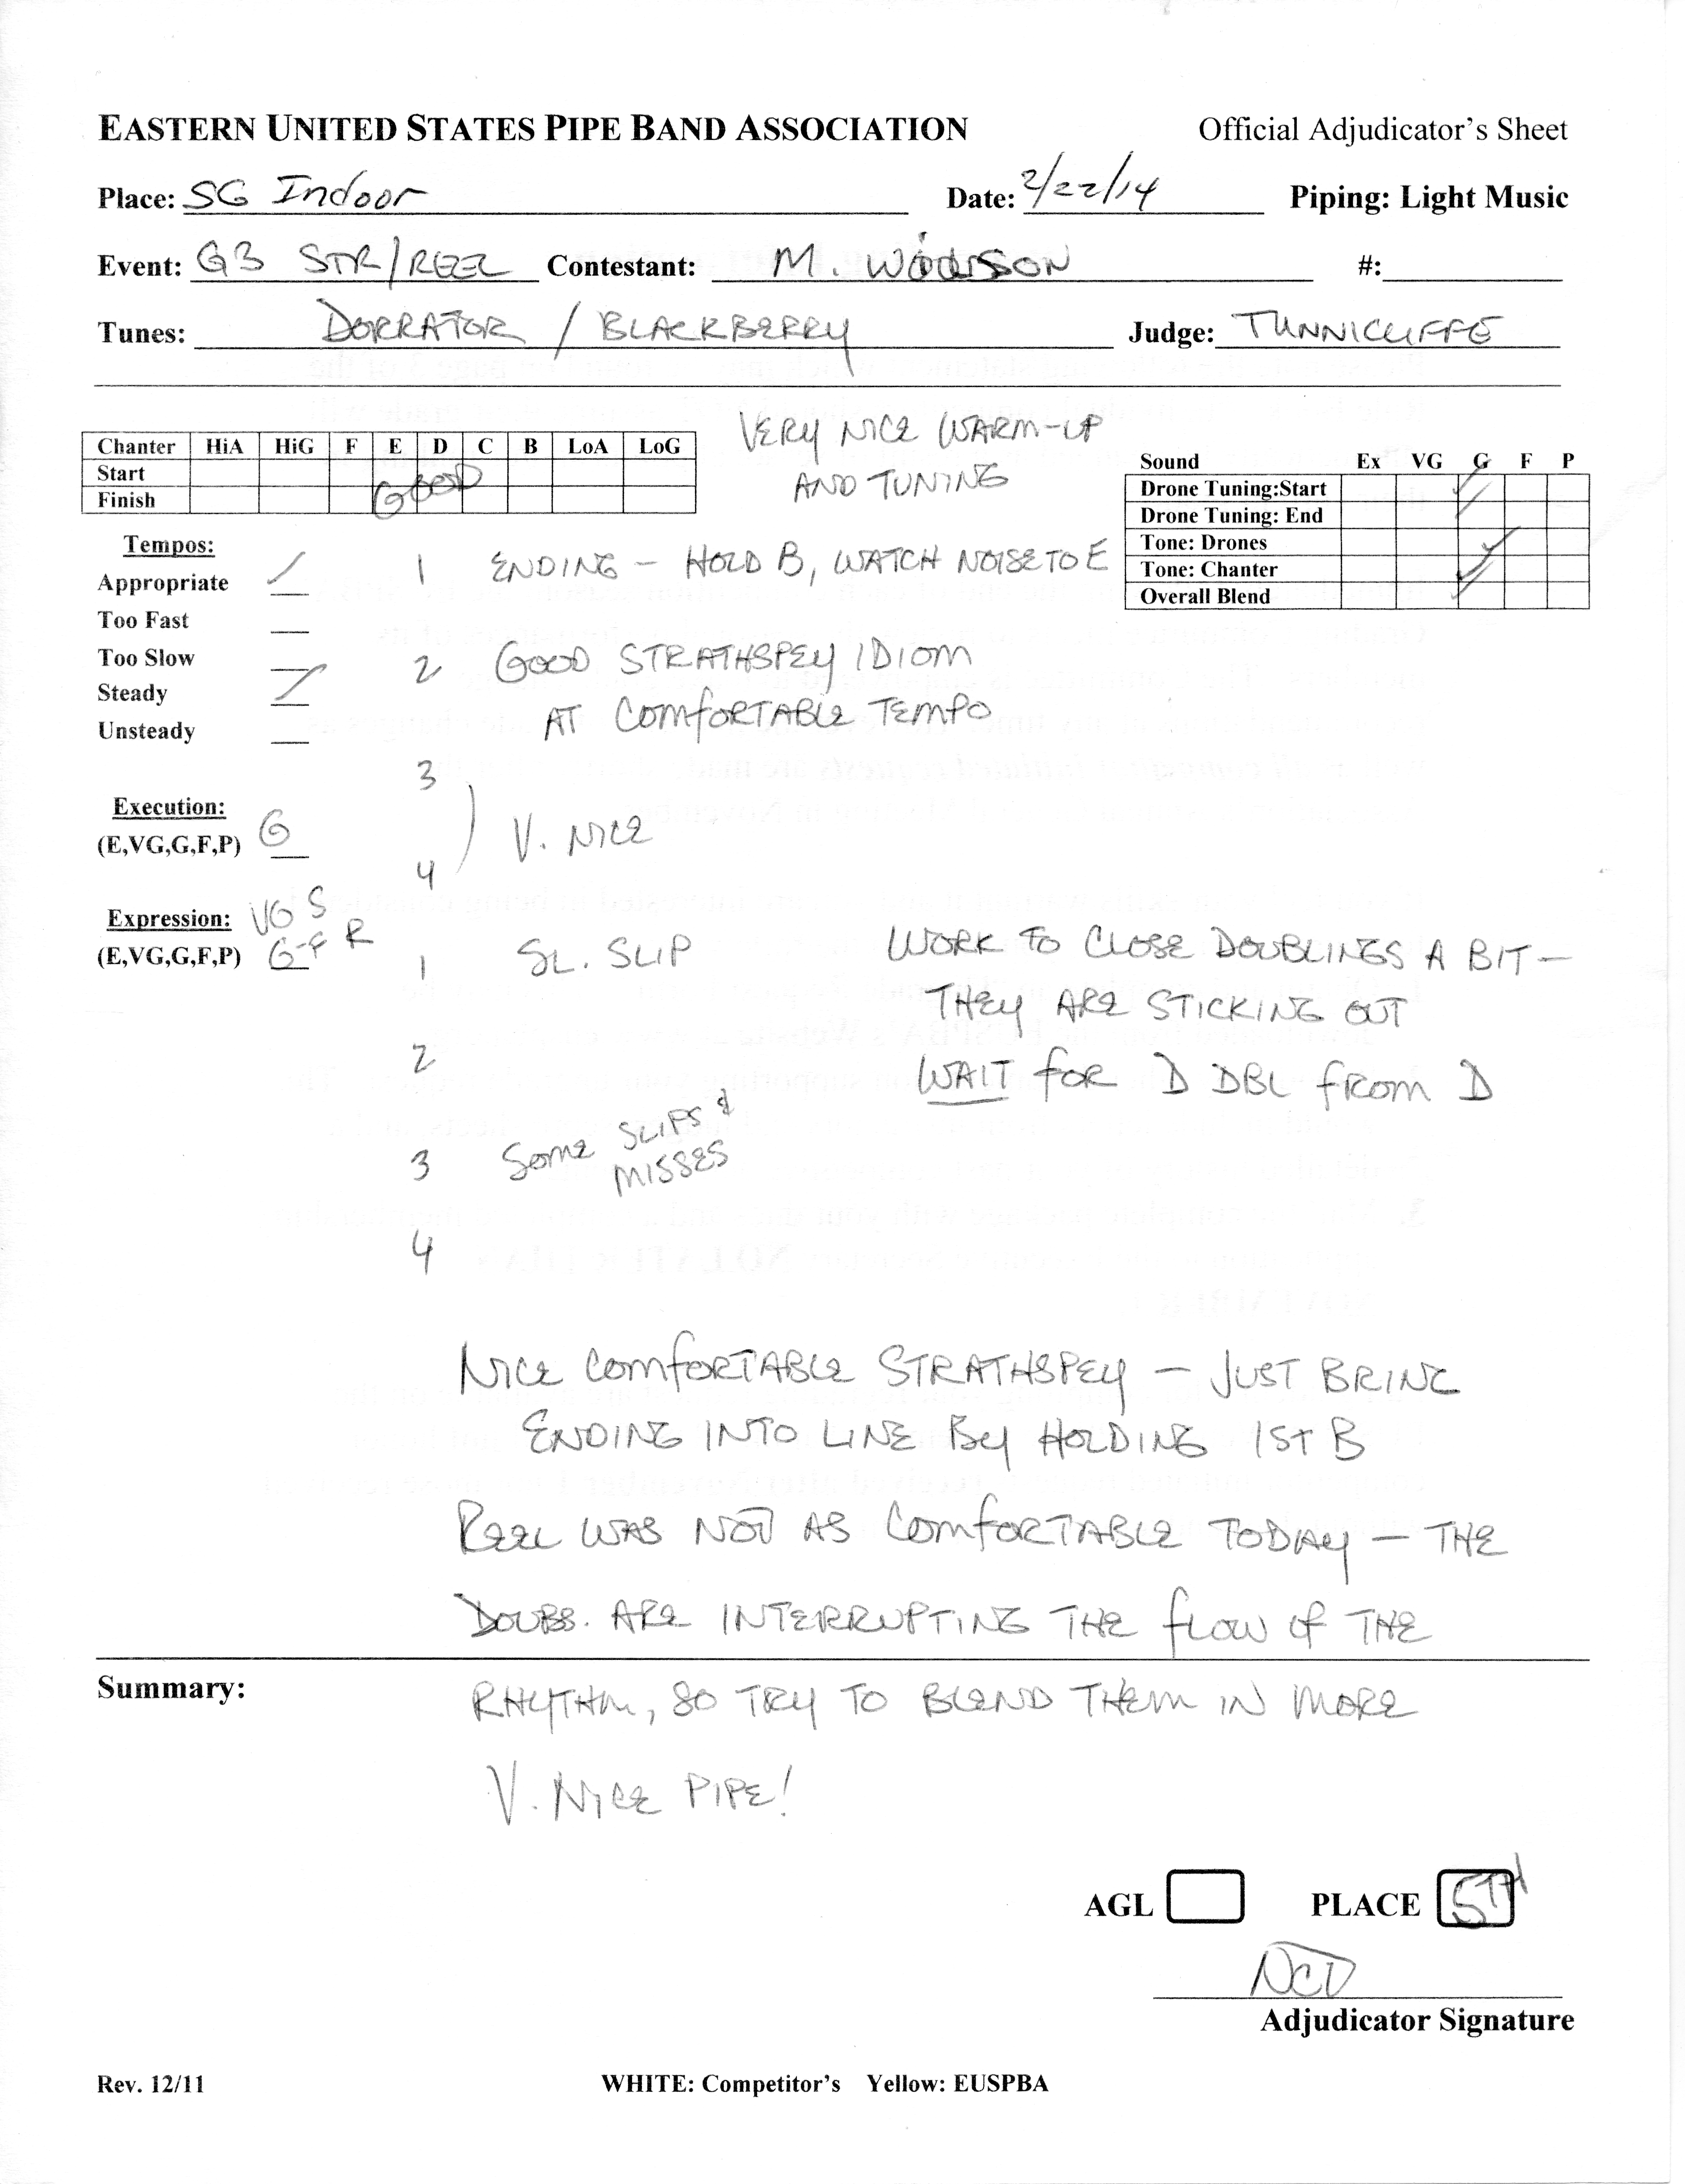 EASTERN UNITED STATES PIPE BAND ASSOCIATION Official Adjudicator's Sheet
Place: SG Indoor Date: 2/22/14 Piping: Light Music
Event: G3 STR/REEL Contestant: M. #:
Tunes: DORRATOR / BLACKBERRY Judge: TUNNICLIFFE
VERY NICE WARM-UP
AND TUNING
Chanter HiA HiG F E D C B LoA LoG
Start
GOOD
Finish
Sound Ex VG G F P
Drone Tuning:Start
Drone Tuning: End
Tone: Drones
Tone: Chanter
Overall Blend
Tempos:
Appropriate
Too Fast
Too Slow
Steady
Unsteady
Execution:
(E,VG,G,F,P) G
Expression: VG S
(E,VG,G,F,P) G-F R
1 ENDING - HOLD B, WATCH NOISE TO E
2 GOOD STRATHSPEY IDIOM
AT COMFORTABLE TEMPO
3
V. NICE
4
1 SL. SLIP
2
3 SOME SLIPS &
MISSES
4
WORK TO CLOSE DOUBLINGS A BIT -
THEY ARE STICKING OUT
WAIT FOR D DBL FROM D
NICE COMFORTABLE STRATHSPEY - JUST BRING
ENDING INTO LINE BY HOLDING 1ST B
REEL WAS NOT AS COMFORTABLE TODAY - THE
DOUBS. ARE INTERRUPTING THE FLOW OF THE
Summary: RHYTHM, SO TRY TO BLEND THEM IN MORE
V. NICE PIPE!
AGL PLACE 5TH
Adjudicator Signature
Rev. 12/11 WHITE: Competitor's Yellow: EUSPBA